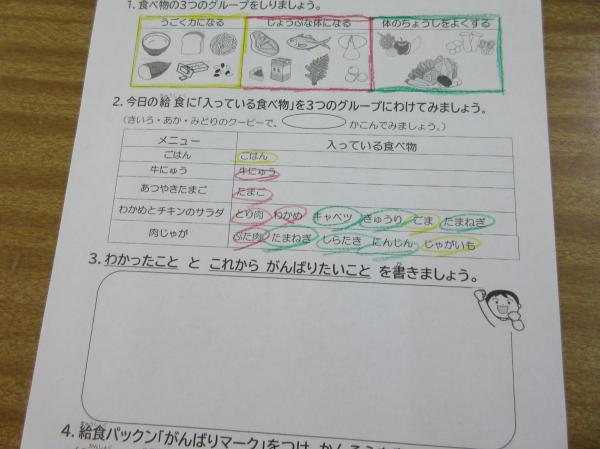 1. 食べ物の3つのグループをしりましょう。
うごく力になる じょうぶな体になる 体のちょうしをよくする
2. 今日の給食に「入っている食べ物」を3つのグループにわけてみましょう。
(きいろ・あか・みどりのクーピーで、 かこんでみましょう。)
メニュー 入っている食べ物
ごはん ごはん
牛にゅう 牛にゅう
あつやきたまご たまご
わかめとチキンのサラダ とり肉 わかめ キャベツ きゅうり ごま たまねぎ
肉じゃが ぶた肉 たまねぎ しらたき にんじん じゃがいも
3. わかったこと と これから がんばりたいこと を書きましょう。
4. 給食パックン「がんばりマーク」をつけ